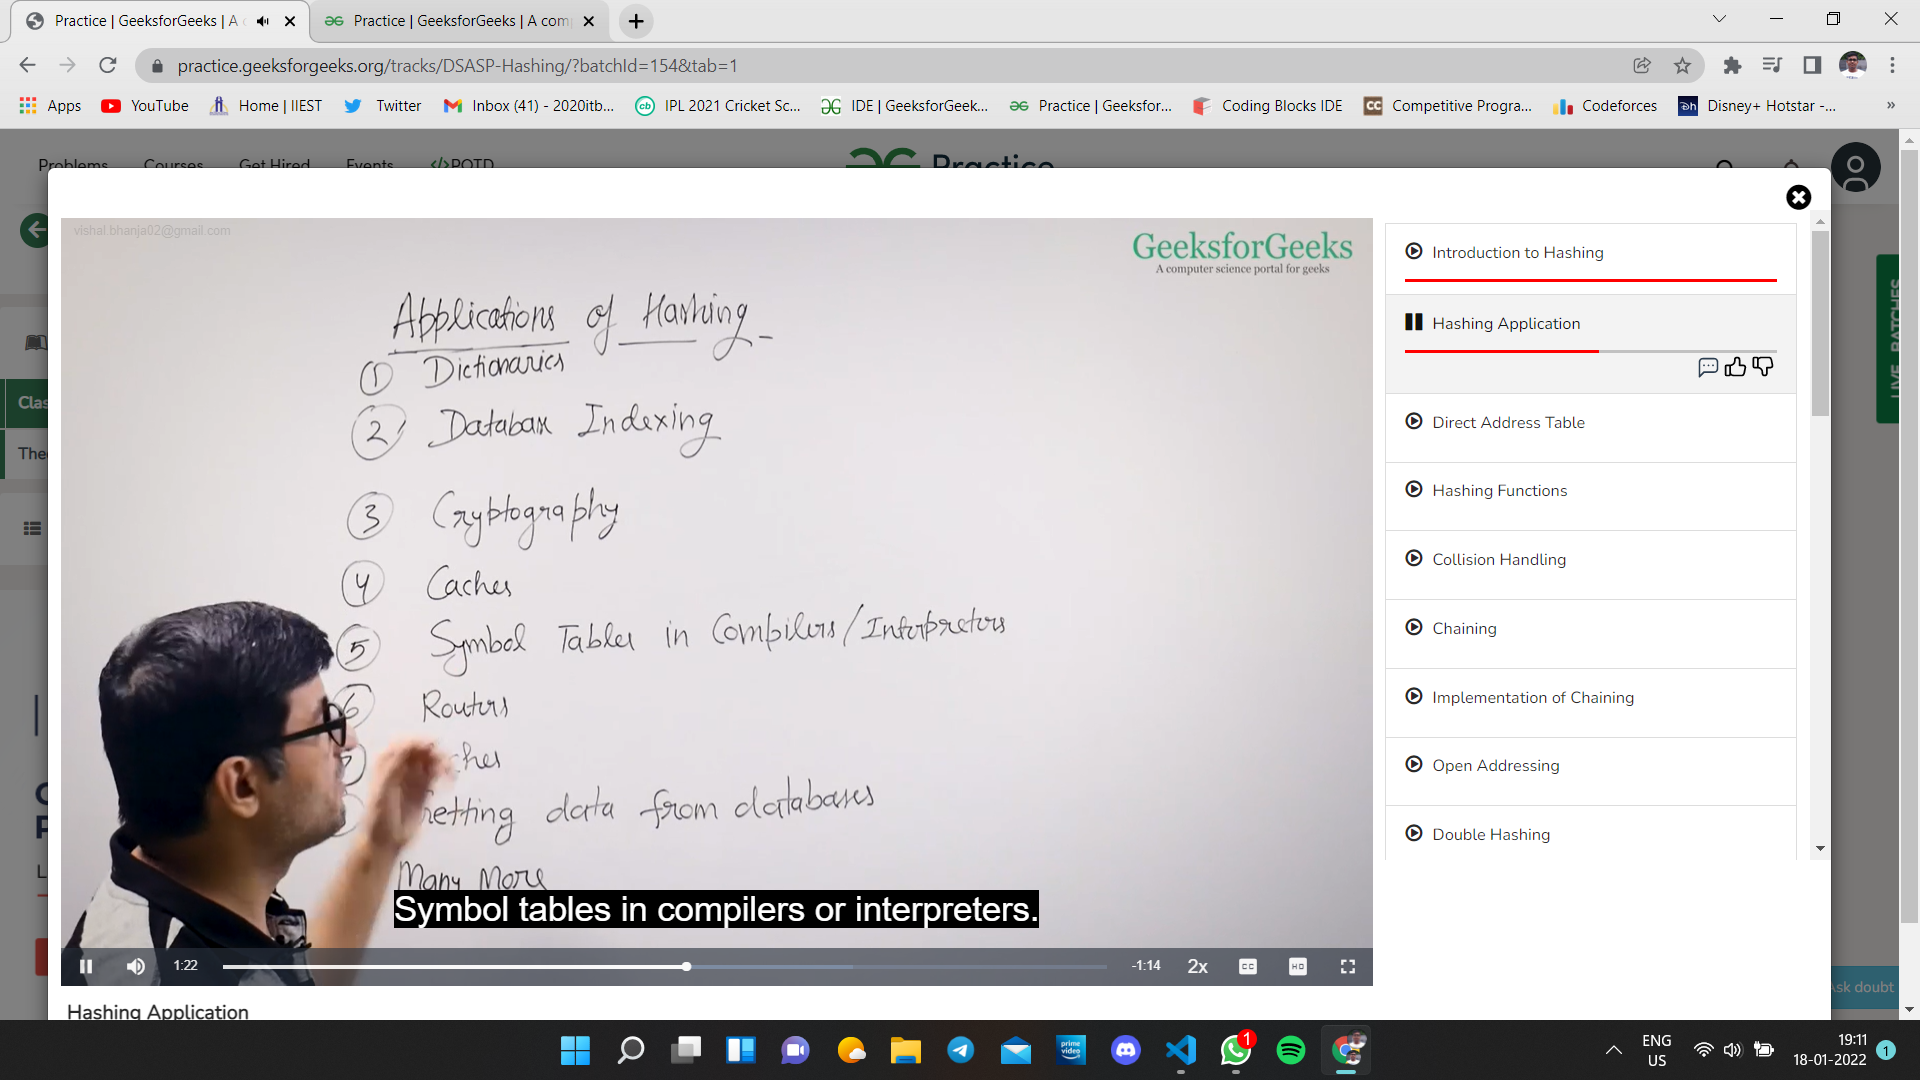 Practice | GeeksforGeeks | A
Practice | GeeksforGeeks | A com
practice.geeksforgeeks.org/tracks/DSASP-Hashing/?batchId=154&tab=1
Apps YouTube Home | IIEST Twitter Inbox (41) - 2020itb... IPL 2021 Cricket Sc... IDE | GeeksforGeek... Practice | Geeksfor... Coding Blocks IDE Competitive Progra... Codeforces Disney+ Hotstar -... »
Problems Courses Get Hired Events POTD Practice
vishal.bhanja02@gmail.com
GeeksforGeeks
A computer science portal for geeks
Applications of Hashing -
1 Dictionaries
2 Database Indexing
3 Cryptography
4 Caches
5 Symbol Tables in Compilers/Interpreters
6 Routers
ches
Getting data from databases
Many More
Symbol tables in compilers or interpreters.
1:22
-1:14 2x CC HD
Hashing Application
Introduction to Hashing
Hashing Application
Direct Address Table
Hashing Functions
Collision Handling
Chaining
Implementation of Chaining
Open Addressing
Double Hashing
LIVE BATCHES
Clas
The
L
Ask doubt
prime video
1
ENG
US
19:11
18-01-2022
1